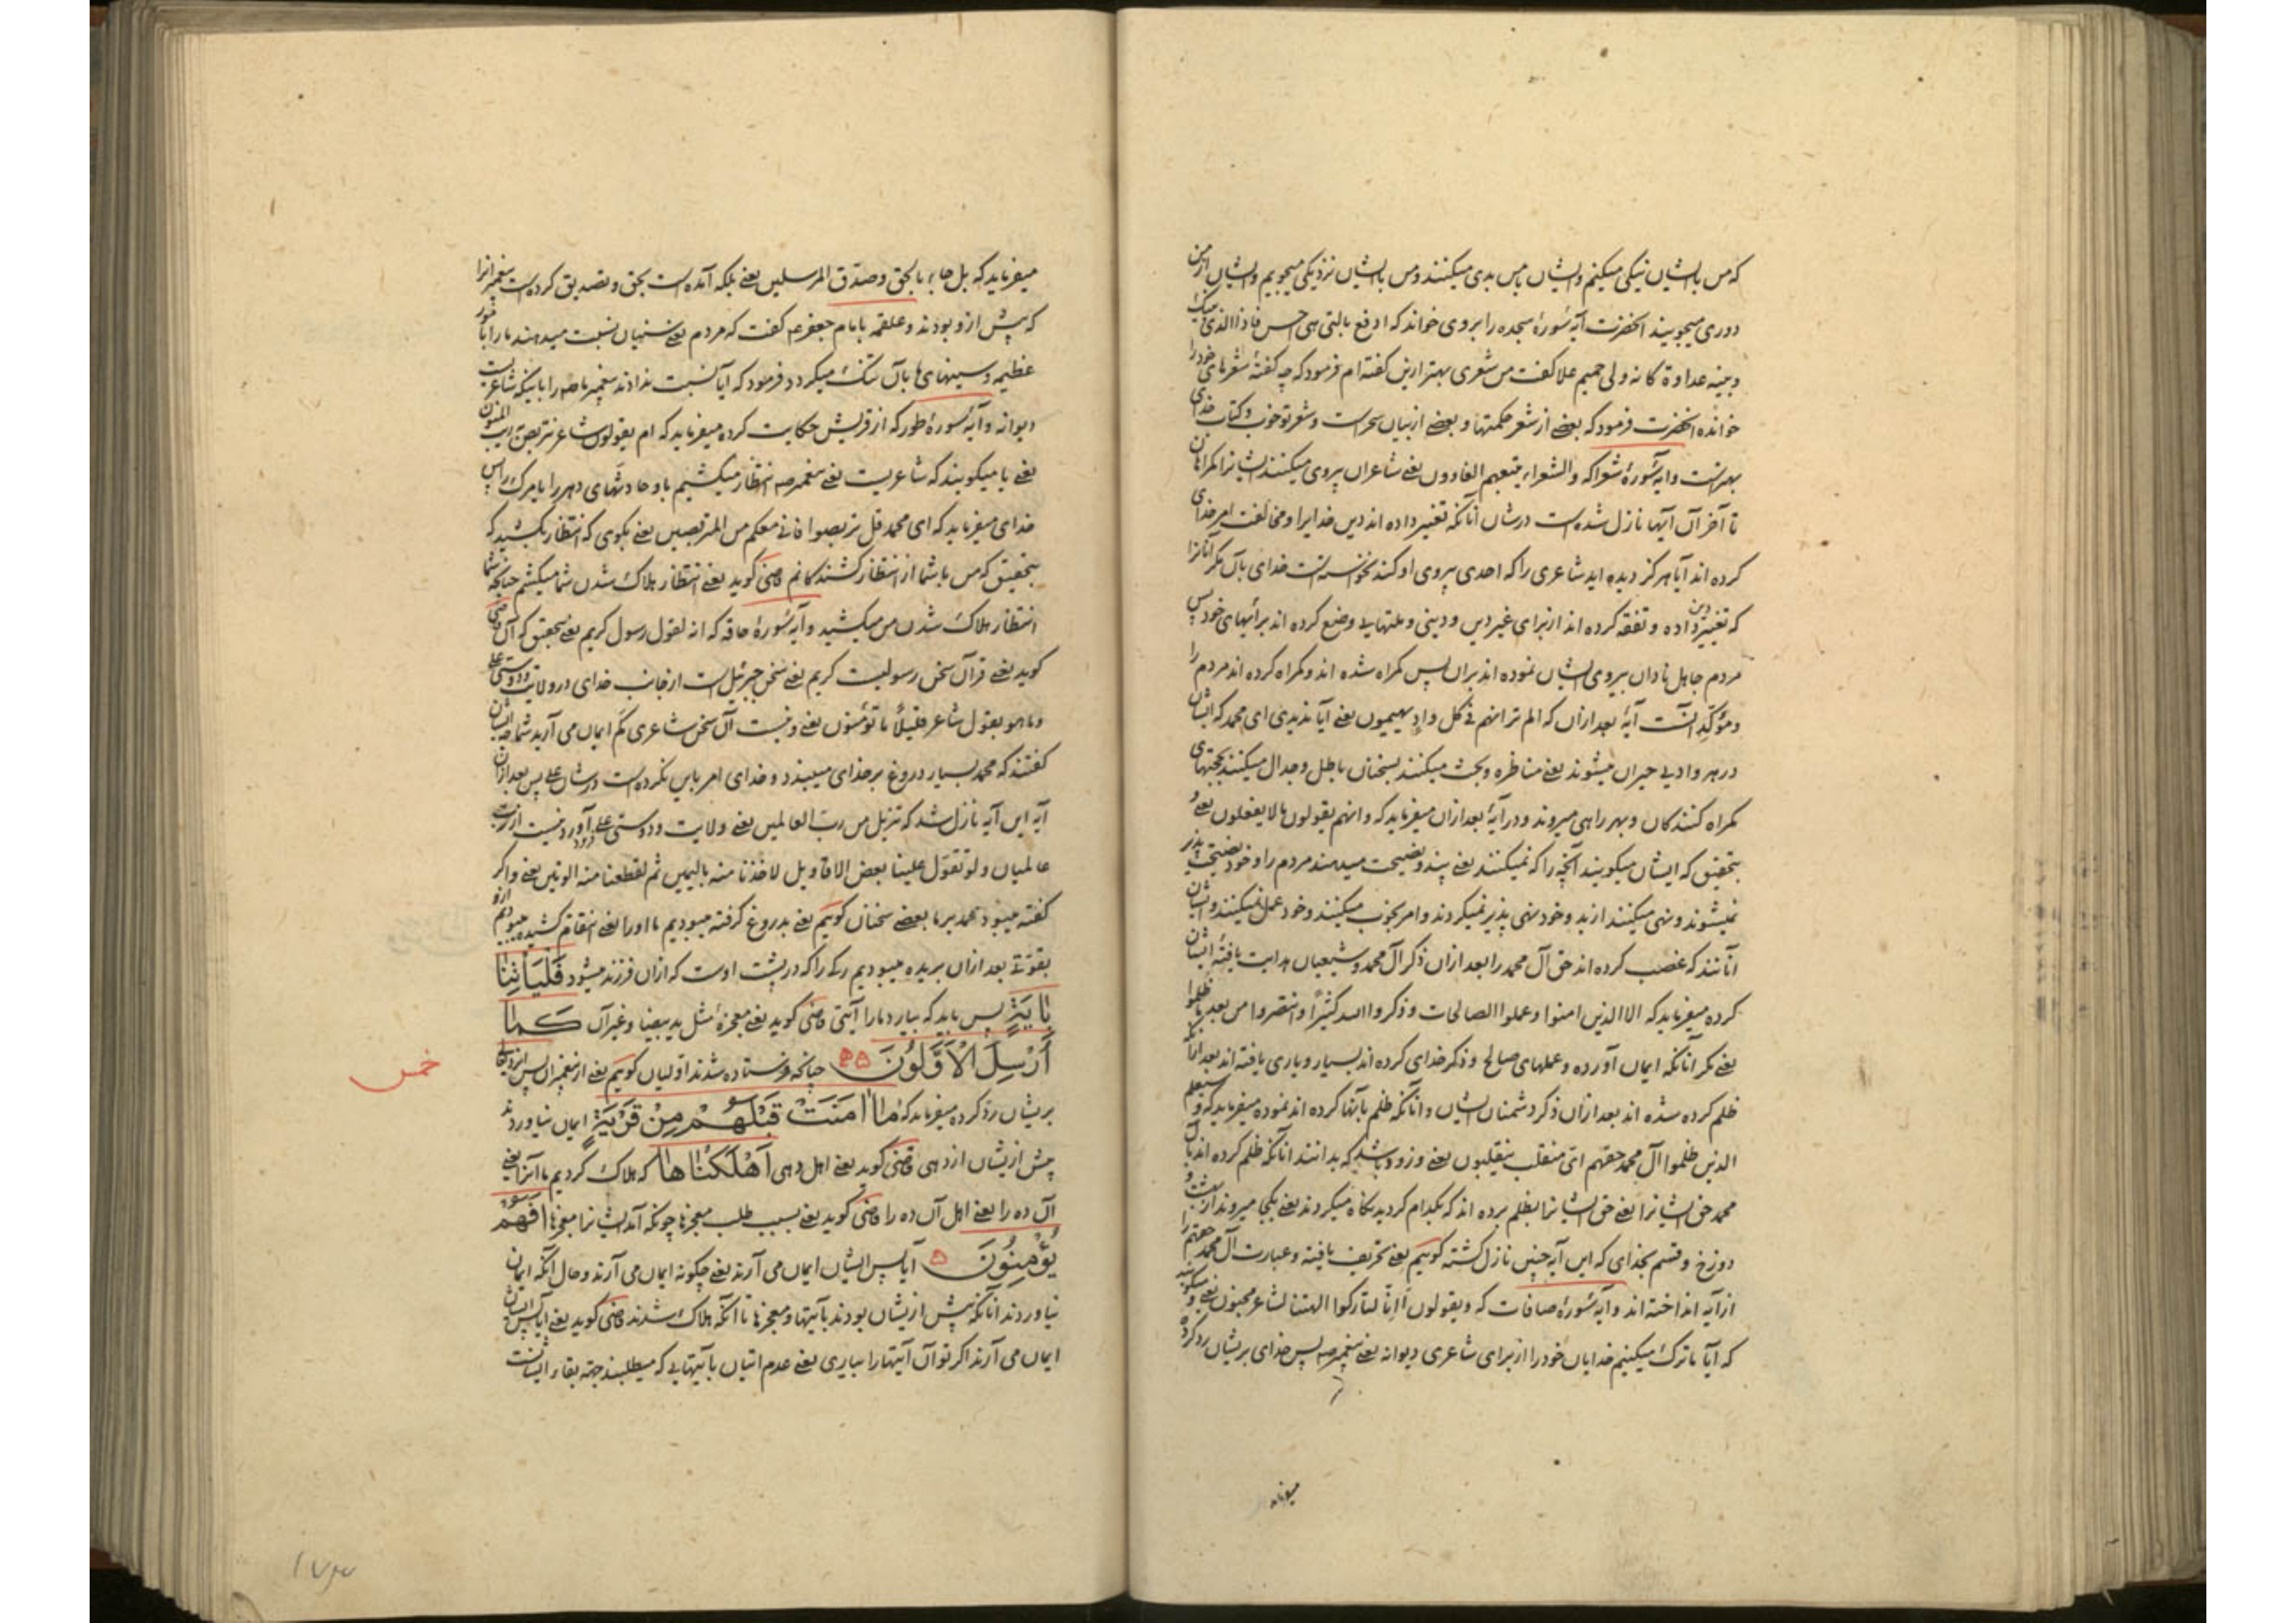 که من بایشان نیکی میکنم وایشان بامن بدی میکنند ومن بایشان نزدیکی میجویم وایشان ازمن
دوری میجویند انحضرت آیهٔ سورهٔ سجده را بروی خواند که ادفع بالتی هی احسن فاذا الذی بینک
وبینه عداوة کانه ولی حمیم علا کفت من شعری بهتر ازین کفته ام فرمود که چه کفتهٔ شعرهای خود را
خوانده انحضرت فرمود که بعضے از شعر حکمتها و بعضے از بیان سحرست وشعر تو خوب وکتاب خدای
بهترست وایهٔ سورهٔ شعرا که والشعراء یتبعهم الغاوون یعنے شاعران پیروی میکنند ایشانرا کمراهان
تا آخر آن آیها نازل شده است درشان آنانکه تغییر داده اند دین خدایرا ومخالفت امر خدای
کرده اند آیا هرکز دیده اید شاعری را که احدی پیروی او کند نخواسته است خدای بآن مکر آنانرا
که تغییر داده دین و تفقه کرده اند از برای غیر دین و دینی وملتهایی وضع کرده اند برأیهای خود پس
مردم جاهل نادان پیروی ایشان نموده اند بران پس کمراه شده اند وکمراه کرده اند مردم را
ومؤکد آنست آیهٔ بعد ازان که الم تر انهم فی کل واد یهیمون یعنے آیا ندیدی ای محمد که ایشان
درهر وادیی حیران میشوند یعنے مناظره وبحث میکنند بسخنان باطل وجدال میکنند بحجتهای
کمراه کنندکان وبهر راهی میروند ودر آیهٔ بعد ازان میفرماید که وانهم یقولون ما لا یفعلون یعنے و
بتحقیق که ایشان میکویند آنچه را که نمیکنند یعنے پند ونصیحت میدهند مردم را وخود نصیحت پذیر
نمیشوند ونهی میکنند از بد وخود نهی پذیر نمیکردند وامر بخوب میکنند وخود عمل نمیکنند وایشان
آنانند که غصب کرده اند حق آل محمد را بعد ازان ذکر آل محمد وشیعیان هدایت یافتهٔ ایشان
کرده میفرماید که الا الذین امنوا وعملوا الصالحات وذکروا الله کثیرًا وانتصروا من بعد ما ظلموا
یعنے مکر آنانکه ایمان آورده وعملهای صالح وذکر خدای کرده اند بسیار ویاری یافته اند بعد ازانکه
ظلم کرده شده اند بعد ازان ذکر دشمنان ایشان وآنانکه ظلم بآنها کرده اند نموده میفرماید که وسیعلم
الذین ظلموا آل محمد حقهم ای منقلب ینقلبون یعنے وزود باشد که بدانند آنانکه ظلم کرده اند بآل
محمد حق ایشانرا یعنے حق ایشانرا بظلم برده اند که بکدام کردیدنکاه میکردند یعنے بکجا میروند از بهشت و
دوزخ وقسم بخدای که این آیه چنین نازل کشته کوییم یعنے تحریف یافته وعبارت آل محمد حقهم را
از آیه انداخته اند وآیهٔ سورهٔ صافات که ویقولون أإنا لتارکوا الهتنا لشاعر مجنون یعنے ومیکویند
که آیا ما ترک میکنیم خدایان خود را از برای شاعری دیوانه یعنے پیغمبر صه پس خدای بریشان رد کرده
میفرماید
میفرماید که بل جاء بالحق وصدق المرسلین یعنے بلکه آمده است بحق وتصدیق کرده است پیغمبرانرا
که پیش ازو بودند وعلقمه بامام جعفر عه کفت که مردم یعنے سنیان نسبت میدهند ما را بامور
عظیمه وسینهای ما بآن تنک میکردد فرمود که آیا نسبت ندادند پیغمبر ما صه را باینکه شاعریست
دیوانه وآیهٔ سورهٔ طور که از قریش حکایت کرده میفرماید که ام یقولون شاعر نتربص به ریب المنون
یعنے یا میکویند که شاعریست یعنے پیغمبر صه انتظار میکشیم باو حادثهای دهر را یا مرک را پس
خدای میفرماید که ای محمد قل تربصوا فانی معکم من المتربصین یعنے بکوی که انتظار بکشید که
بتحقیق که من با شما از انتظار کشندکانم قاضی کوید یعنے انتظار هلاک شدن شما میکشم چنانچه شما
انتظار هلاک شدن من میکشید وآیهٔ سورهٔ حاقه که انه لقول رسول کریم یعنے بتحقیق که آن قاضی
کوید یعنے قرآن سخن رسولیست کریم یعنے سخن جبرئیل است از جانب خدای در ولایت ودوستی علی
وما هو بقول شاعر قلیلًا ما تؤمنون یعنے ونیست آن سخن شاعری کم ایمان می آرید شما چه ایشان
کفتند که محمد بسیار دروغ بر خدای میبندد وخدای امر باین نکرده است درشان علی پس بعد ازان
آیه این آیه نازل شد که تنزیل من رب العالمین یعنے ولایت ودوستی علی فرود آوردنیست از رب
عالمیان ولو تقول علینا بعض الاقاویل لاخذنا منه بالیمین ثم لقطعنا منه الوتین یعنے واکر
کفته میبود محمد بر ما بعضے سخنان کوییم یعنے بدروغ کرفته میبودیم ما اورا یعنے انتقام کشیده میبودیم ازو
بقوتی بعد ازان بریده میبودیم رکی را که در پشت اوست که ازان فرزند میشود فَلْيَأْتِنَا
بِآيَةٍ پس باید که بیارد ما را آیتی قاضی کوید یعنے معجزهٔ مثل ید بیضا وغیر آن كَمَا
أُرْسِلَ الْأَوَّلُونَ ۵ چنانچه فرستاده شدند اولیان کوییم یعنے از پیغمبران پس ایزد تعالی
خمس
بریشان رد کرده میفرماید که مَا آمَنَتْ قَبْلَهُمْ مِنْ قَرْيَةٍ ایمان نیاوردند
پیش ازیشان از دهی قاضی کوید یعنے اهل دهی أَهْلَكْنَاهَا که هلاک کردیم ما آنرا یعنے
آن ده را یعنے اهل آن ده را قاضی کوید یعنے بسبب طلب معجزها چونکه آمد ایشانرا معجزها أَفَهُمْ
يُؤْمِنُونَ ۵ آیا پس ایشان ایمان می آرند یعنے چکونه ایمان می آرند وحال آنکه ایمان
نیاوردند آنانکه پیش ازیشان بودند بآیتها ومعجزها تا آنکه هلاک شدند قاضی کوید یعنے آیا پس ایشان
ایمان می آرند اکر تو آن آیتها را بیاری یعنے عدم اتیان بآیتهایی که میطلبند جهة بقاء ایشانست
۱۷۳